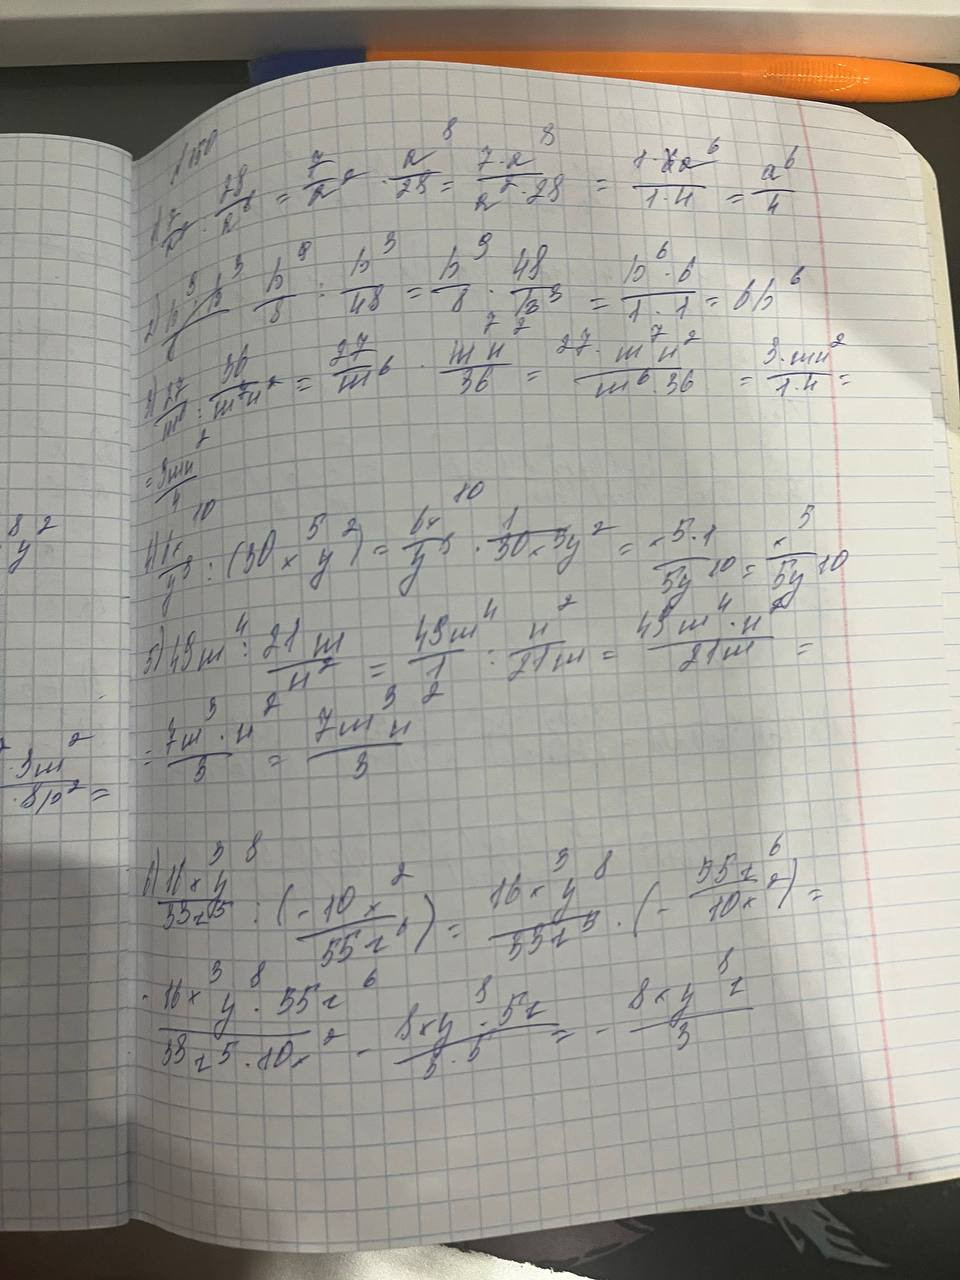 №150
1) 7/a² : 28/a⁸ = 7/a² · a⁸/28 = 7·a⁸/a²·28 = 1·a⁶/1·4 = a⁶/4
2) b⁹/8 : b³/48 = b⁹/8 · 48/b³ = b⁶·6/1·1 = 6b⁶
3) 27/m⁶ : 36/m⁷n² = 27/m⁶ · m⁷n²/36 = 27·m⁷n²/m⁶·36 = 3·mn²/1·4 =
= 3mn²/4
: (30x⁵y²) = 6x¹⁰/y⁸ · 1/30x⁵y² = x⁵·1/5y¹⁰ = x⁵/5y¹⁰
5) 49m⁴ : 21m/n² = 49m⁴/1 : n²/21m = 49m⁴·n²/21m =
= 7m³·n²/3 = 7m³n²/3
6) 16x³y⁸/33z⁵ : (-10x²/55z⁶) = 16x³y⁸/33z⁵ · (-55z⁶/10x²) =
- 16x³y⁸·55z⁶/33z⁵·10x² - 8xy⁸·5z/3·5 = - 8xy⁸z/3
8y²
·3m²/·8b² =